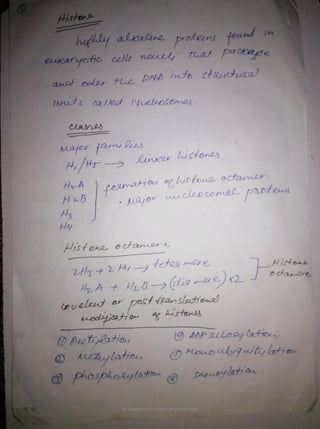 Histone
highly alkaline proteins found in
eukaryotic cells neuclei that package
and order the DNA into structural
units called Nucleosomes.
classes
Major families
H1/H5 → linker histones
H2A
H2B
H3
H4
formation of histone octamer.
• Major nucleosomal proteins
Histone octamere
2H3 + 2H4 → tetramere
H2A + H2B → (diamere) x2
Histone octamere
covelent or post translational
modification of histones
① Acetylation
② Methylation
③ phosphorylation
④ ADP Ribosylation
⑤ Monoubiquitylation
⑥ sumoylation.